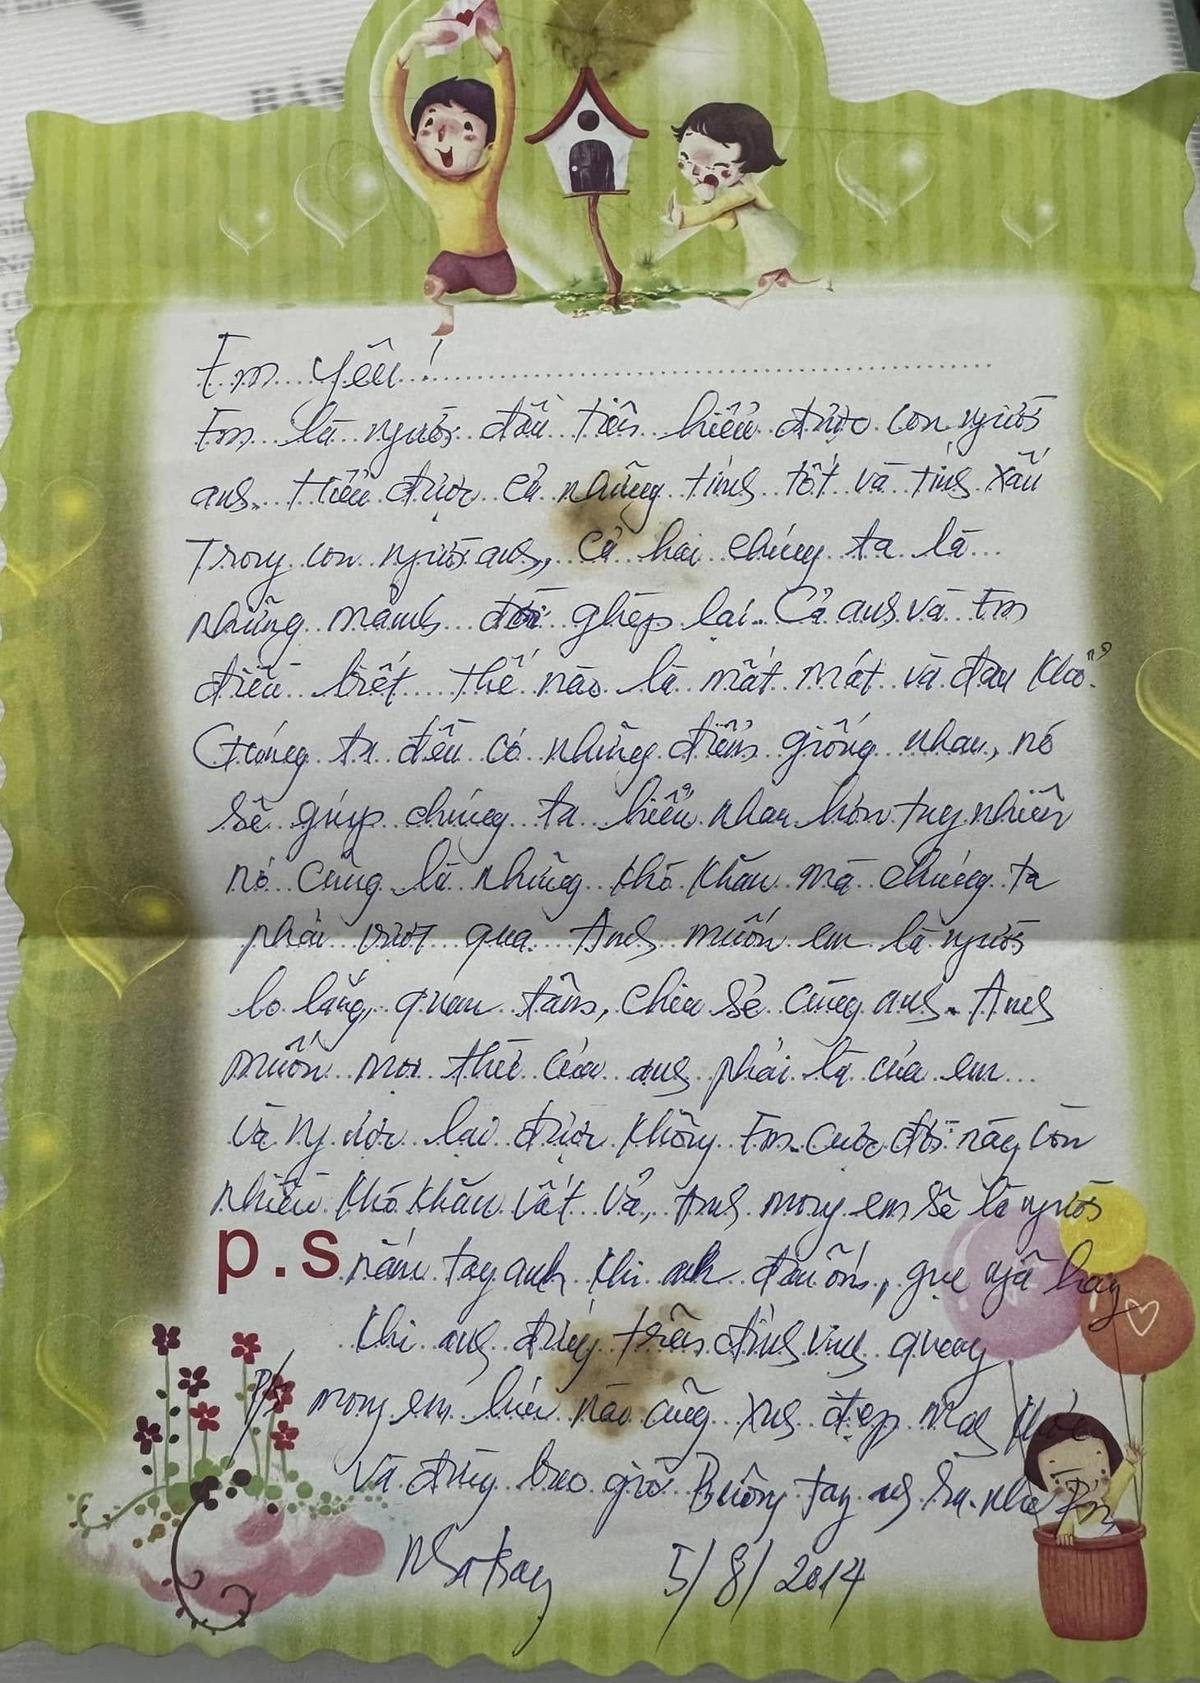 Em yêu!
Em là người đầu tiên hiểu được con người
anh. Hiểu được cả những tính tốt và tính xấu
Trong con người anh, cả hai chúng ta là...
những mảnh đời ghép lại. Cả anh và Em
điều biết thế nào là mất mát và đau khổ.
Chúng ta đều có những điểm giống nhau, nó
sẽ giúp chúng ta hiểu nhau hơn tuy nhiên
nó cũng là những khó khăn mà chúng ta
phải vượt qua. Anh muốn em là người
lo lắng, quan tâm, chia sẻ cùng anh. Anh
muốn mọi thứ của anh phải là của em...
và ngược lại được không Em. Cuộc đời này còn
nhiều khó khăn vất vả, Anh mong em sẽ là người
p.s nắm tay anh khi anh đau ốm, gục ngã hay
khi anh đứng trên đỉnh vinh quang
P/s mong em lúc nào cũng xinh đẹp mạnh khỏe
Và đừng bao giờ Buông tay anh ra nha
Nha trang 5/8/2014